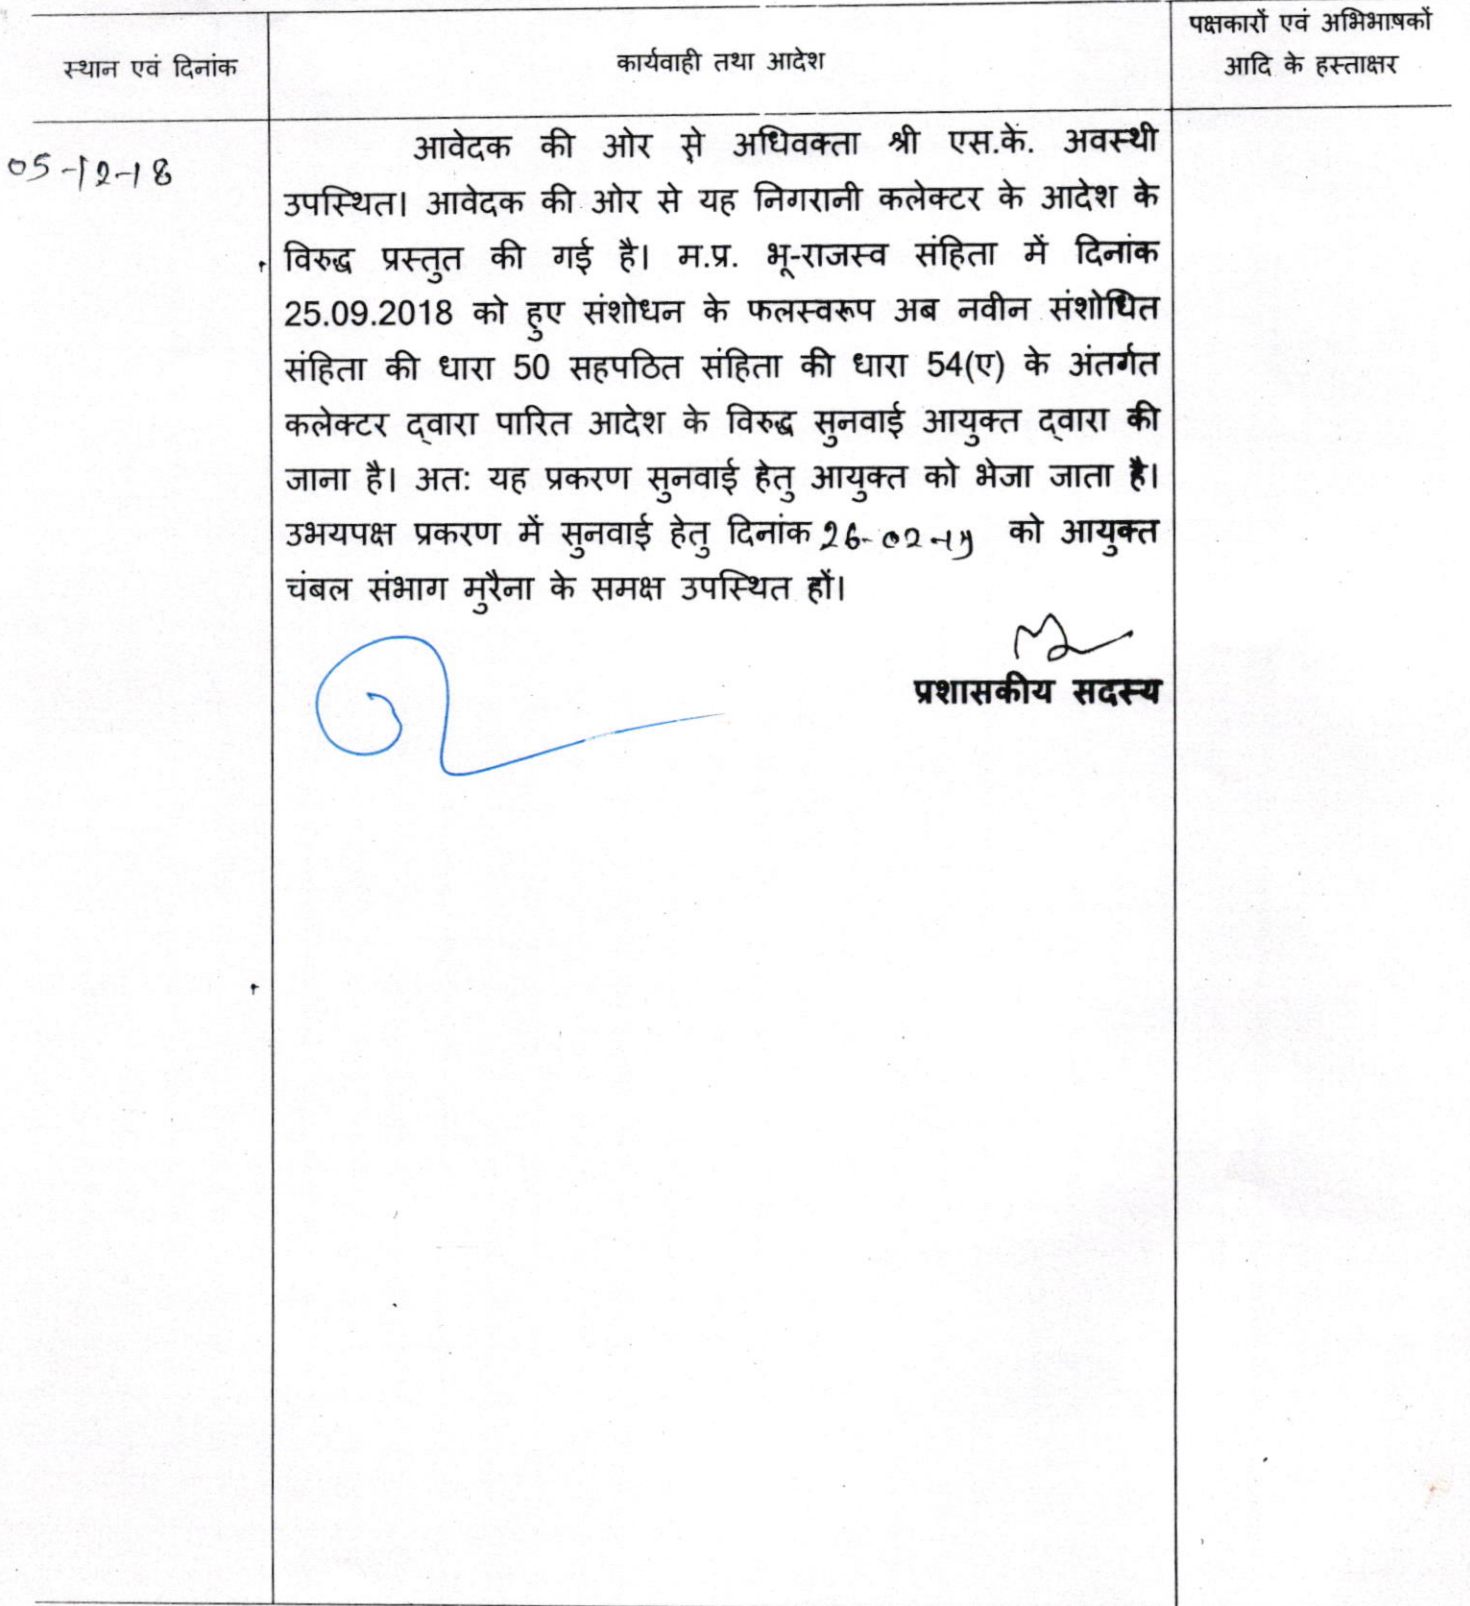 स्थान एवं दिनांक
कार्यवाही तथा आदेश
पक्षकारों एवं अभिभाषकों
आदि के हस्ताक्षर
05-12-18
आवेदक की ओर से अधिवक्ता श्री एस.के. अवस्थी
उपस्थित। आवेदक की ओर से यह निगरानी कलेक्टर के आदेश के
विरुद्ध प्रस्तुत की गई है। म.प्र. भू-राजस्व संहिता में दिनांक
25.09.2018 को हुए संशोधन के फलस्वरूप अब नवीन संशोधित
संहिता की धारा 50 सहपठित संहिता की धारा 54(ए) के अंतर्गत
कलेक्टर द्वारा पारित आदेश के विरुद्ध सुनवाई आयुक्त द्वारा की
जाना है। अतः यह प्रकरण सुनवाई हेतु आयुक्त को भेजा जाता है।
उभयपक्ष प्रकरण में सुनवाई हेतु दिनांक 26-02-19 को आयुक्त
चंबल संभाग मुरैना के समक्ष उपस्थित हों।
प्रशासकीय सदस्य